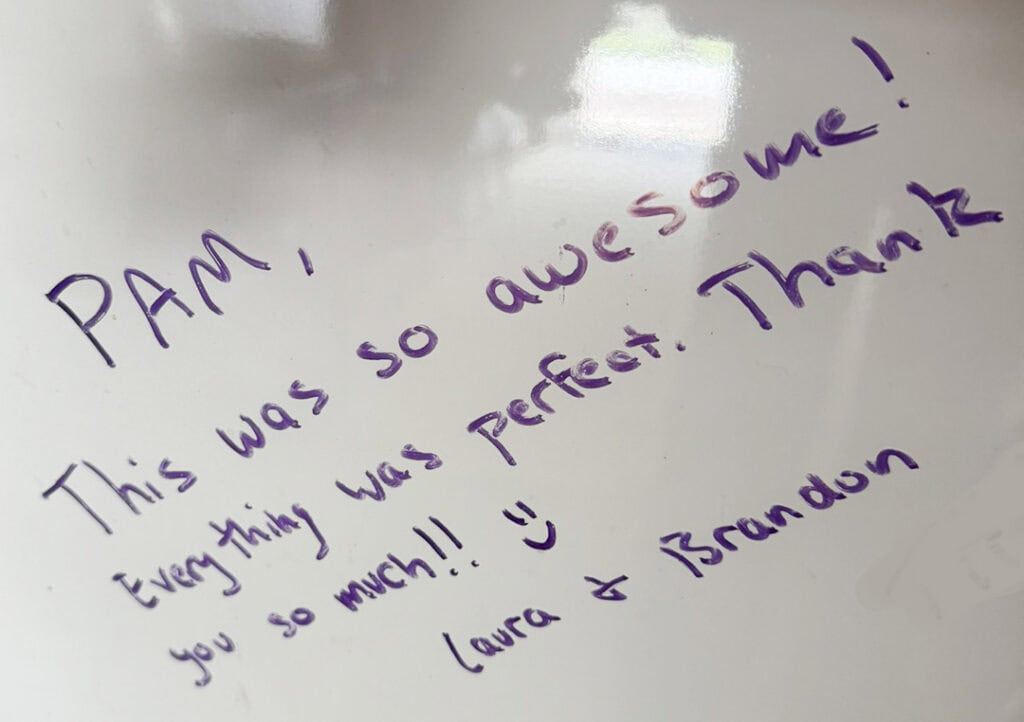 PAM,
This was so awesome!
Everything was perfect. Thank
you so much!! :)
Laura & Brandon